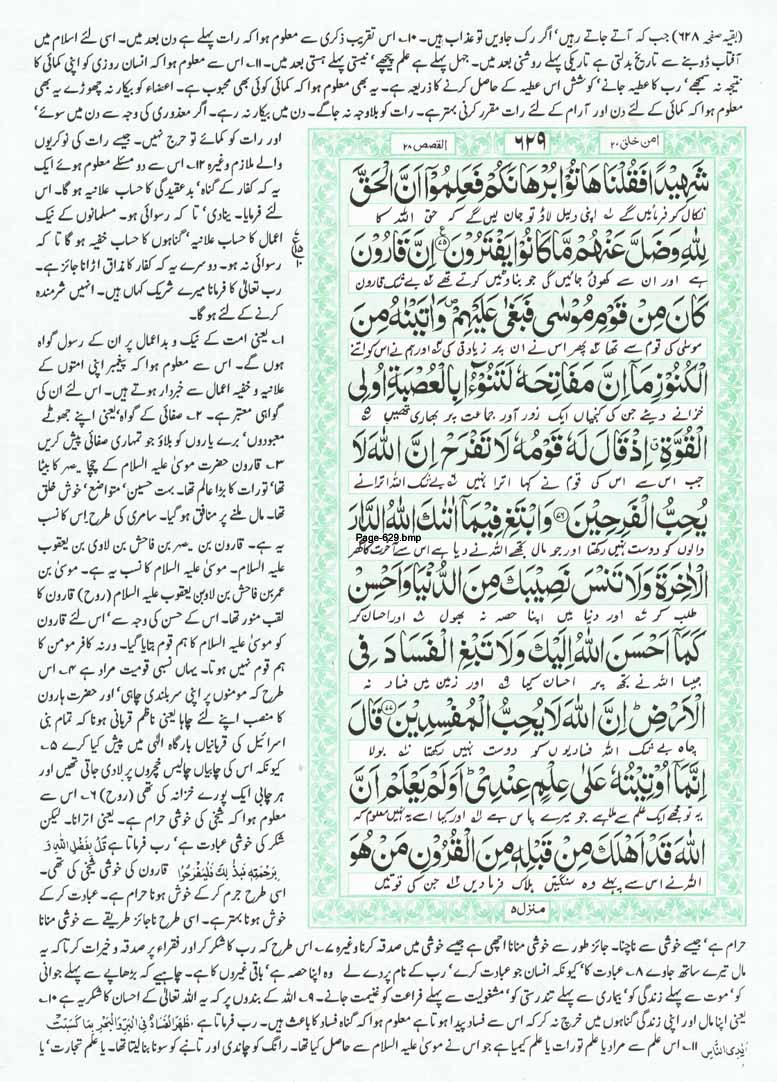 (بقیہ صفحہ ۶۲۸) جب کہ آتے جاتے رہیں' اگر رک جاویں تو عذاب ہیں۔ ۱۰۔ اس تقریب ذکری سے معلوم ہوا کہ رات پہلے ہے دن بعد میں۔ اسی لئے اسلام میں
آفتاب ڈوبنے سے تاریخ بدلتی ہے تاریکی پہلے روشنی بعد میں۔ جہل پہلے ہے علم پیچھے' نیستی پہلے ہستی بعد میں۔ ۱۱۔ اس سے معلوم ہوا کہ انسان روزی کو اپنی کمائی کا
نتیجہ نہ سمجھے' رب کا عطیہ جانے' کوشش اس عطیہ کے حاصل کرنے کا ذریعہ ہے۔ یہ بھی معلوم ہوا کہ کمائی کوئی بھی محبوب ہے۔ اعضاء کو بیکار نہ چھوڑے یہ بھی
معلوم ہوا کہ کمائی کے لئے دن اور آرام کے لئے رات مقرر کرنی بہتر ہے۔ رات کو بلاوجہ نہ جاگے۔ دن میں بیکار نہ رہے۔ اگر معذوری کی وجہ سے دن میں سوئے'
امن خلق ۲۰
۶۲۹
القصص ۲۸
شَهِيْدًا فَقُلْنَا هَاتُوْا بُرْهَانَكُمْ فَعَلِمُوْٓا اَنَّ الْحَقَّ
نکال کر فرمائیں گے اپنی دلیل لاؤ تو جان لیں گے کہ حق اللہ کا
لِلّٰهِ وَضَلَّ عَنْهُمْ مَّا كَانُوْا يَفْتَرُوْنَ ۷۵ اِنَّ قَارُوْنَ
ہے اور ان سے کھوئی جائیں گی جو بناوٹیں کرتے تھے بے شک قارون
كَانَ مِنْ قَوْمِ مُوْسٰى فَبَغٰى عَلَيْهِمْ ۖ وَاٰتَيْنٰهُ مِنَ
موسیٰ کی قوم سے تھا پھر اس نے ان پر زیادتی کی اور ہم نے اس کو اتنے
الْكُنُوْزِ مَآ اِنَّ مَفَاتِحَهٗ لَتَنُوْٓاُ بِالْعُصْبَةِ اُولِى
خزانے دیئے جن کی کنجیاں ایک زور آور جماعت پر بھاری تھیں
الْقُوَّةِ ۤ اِذْ قَالَ لَهٗ قَوْمُهٗ لَا تَفْرَحْ اِنَّ اللّٰهَ لَا
جب اس سے اس کی قوم نے کہا اترا نہیں بے شک اللہ اترانے
يُحِبُّ الْفَرِحِيْنَ ۷۶ وَابْتَغِ فِيْمَآ اٰتٰىكَ اللّٰهُ الدَّارَ
Page-629.bmp
والوں کو دوست نہیں رکھتا اور جو مال تجھے اللہ نے دیا ہے اس سے آخرت کا گھر
الْاٰخِرَةَ وَلَا تَنْسَ نَصِيْبَكَ مِنَ الدُّنْيَا وَاَحْسِنْ
طلب کر اور دنیا میں اپنا حصہ نہ بھول اور احسان کر
كَمَآ اَحْسَنَ اللّٰهُ اِلَيْكَ وَلَا تَبْغِ الْفَسَادَ فِى
جیسا اللہ نے تجھ پر احسان کیا اور زمین میں فساد نہ
الْاَرْضِ ۭ اِنَّ اللّٰهَ لَا يُحِبُّ الْمُفْسِدِيْنَ ۷۷ قَالَ
چاہ بے شک اللہ فسادیوں کو دوست نہیں رکھتا بولا
اِنَّمَآ اُوْتِيْتُهٗ عَلٰى عِلْمٍ عِنْدِيْ ۭ اَوَلَمْ يَعْلَمْ اَنَّ
یہ تو مجھے ایک علم سے ملا ہے جو میرے پاس ہے اور کیا اسے یہ نہیں معلوم کہ
اللّٰهَ قَدْ اَهْلَكَ مِنْ قَبْلِهٖ مِنَ الْقُرُوْنِ مَنْ هُوَ
اللہ نے اس سے پہلے وہ سنگتیں ہلاک فرما دیں جن کی قوتیں
منزل ۵
اور رات کو کمائے تو حرج نہیں۔ جیسے رات کی نوکریوں
والے ملازم وغیرہ ۱۲۔ اس سے دو مسئلے معلوم ہوئے ایک
یہ کہ کفار کے گناہ' بدعقیدگی کا حساب علانیہ ہو گا۔ اس
لئے فرمایا۔ ینادی' تا کہ رسوائی ہو۔ مسلمانوں کے نیک
اعمال کا حساب علانیہ' گناہوں کا حساب خفیہ ہو گا تا کہ
رسوائی نہ ہو۔ دوسرے یہ کہ کفار کا مذاق اڑانا جائز ہے۔
رب تعالیٰ کا فرمانا میرے شریک کہاں ہیں۔ انہیں شرمندہ
کرنے کے لئے ہو گا۔
۱۔ یعنی امت کے نیک و بد اعمال پر ان کے رسول گواہ
ہوں گے۔ اس سے معلوم ہوا کہ پیغمبر اپنی امتوں کے
علانیہ و خفیہ اعمال سے خبردار ہوتے ہیں۔ اس لئے ان کی
گواہی معتبر ہے۔ ۲۔ صفائی کے گواہ' یعنی اپنے جھوٹے
معبودوں' برے یاروں کو بلاؤ جو تمہاری صفائی پیش کریں
۳۔ قارون حضرت موسیٰ علیہ السلام کے چچا یصہر کا بیٹا
تھا' تورات کا بڑا عالم تھا۔ بہت حسین' متواضع' خوش خلق
تھا۔ مال ملنے پر منافق ہو گیا۔ سامری کی طرح' اس کا نسب
یہ ہے۔ قارون بن یصہر بن فاحش بن لاوی بن یعقوب
علیہ السلام۔ موسیٰ علیہ السلام کا نسب یہ ہے۔ موسیٰ بن
عمر بن فاحش بن لاوی بن یعقوب علیہ السلام (روح) قارون کا
لقب منور تھا۔ اس کے حسن کی وجہ سے' اس لئے قارون
کو موسیٰ علیہ السلام کا ہم قوم بتایا گیا۔ ورنہ کافر مومن کا
ہم قوم نہیں ہوتا۔ یہاں نسبی قومیت مراد ہے ۴۔ اس
طرح کہ مومنوں پر اپنی سربلندی چاہی' اور حضرت ہارون
کا منصب اپنے لئے چاہا یعنی ناظم قربانی ہونا کہ تمام بنی
اسرائیل کی قربانیاں بارگاہ الٰہی میں پیش کیا کرے ۵۔
کیونکہ اس کی چابیاں چالیس خچروں پر لادی جاتی تھیں اور
ہر چابی ایک پورے خزانہ کی تھی (روح) ۶۔ اس سے
معلوم ہوا کہ شیخی کی خوشی حرام ہے۔ یعنی اترانا۔ لیکن
شکر کی خوشی عبادت ہے' رب فرماتا ہے قُلْ بِفَضْلِ اللّٰهِ وَ
بِرَحْمَتِهٖ فَبِذٰلِكَ فَلْيَفْرَحُوْا قارون کی خوشی شیخی کی تھی۔
اسی طرح جرم کر کے خوش ہونا حرام ہے۔ عبادت کر کے
خوش ہونا بہتر ہے۔ اسی طرح ناجائز طریقے سے خوشی منانا
حرام ہے' جیسے خوشی سے ناچنا۔ جائز طور سے خوشی منانا اچھی ہے جیسے خوشی میں صدقہ کرنا وغیرہ ۷۔ اس طرح کہ رب کا شکر کر اور فقراء پر صدقہ و خیرات کرتا کہ یہ
مال تیرے ساتھ جاوے ۸۔ عبادت کا' کیونکہ انسان جو عبادت کرے' رب کے نام پر دے لے وہ اپنا حصہ ہے' باقی غیروں کا ہے۔ چاہیے کہ بڑھاپے سے پہلے جوانی
کو' موت سے پہلے زندگی کو' بیماری سے پہلے تندرستی کو' مشغولیت سے پہلے فراغت کو غنیمت جانے۔ ۹۔ اللہ کے بندوں پر کہ یہ اللہ تعالیٰ کے احسان کا شکریہ ہے ۱۰۔
یعنی اپنا مال اور اپنی زندگی گناہوں میں خرچ نہ کر کہ اس سے فساد پیدا ہوتا ہے معلوم ہوا کہ گناہ فساد کا باعث ہیں۔ رب فرماتا ہے' ظَهَرَ الْفَسَادُ فِى الْبَرِّ وَالْبَحْرِ بِمَا كَسَبَتْ
اَيْدِى النَّاسِ ۱۱۔ اس علم سے مراد یا علم تورات یا علم کیمیا ہے جو اس نے موسیٰ علیہ السلام سے حاصل کیا تھا۔ رانگ کو چاندی اور تانبے کو سونا بنا لیتا تھا۔ یا علم تجارت' یا